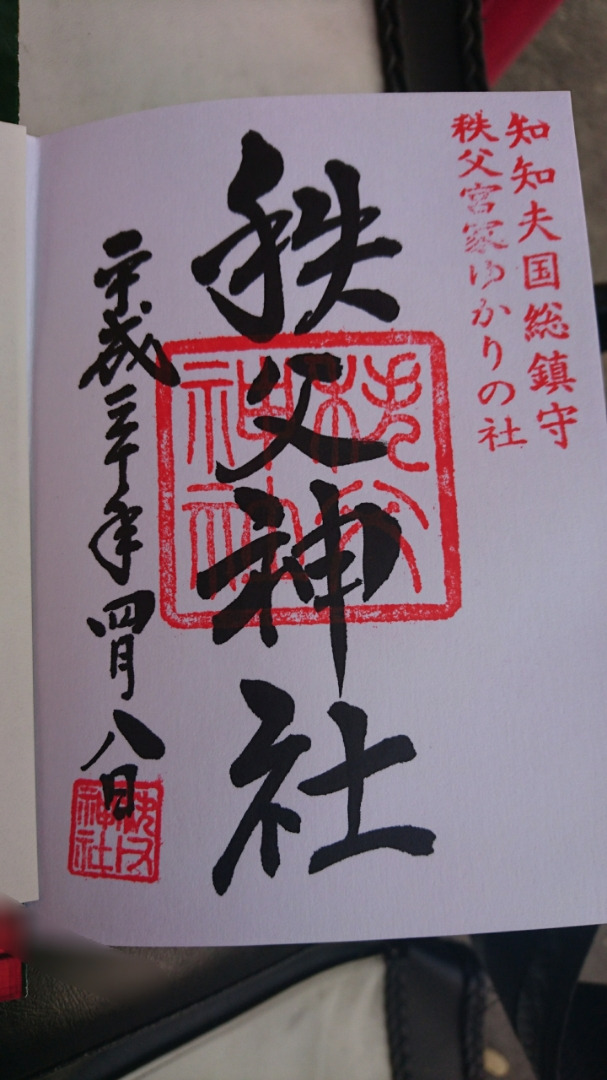 知知夫国総鎮守
秩父宮家ゆかりの社
秩父神社
秩父
神社
平成三十年四月八日
秩父
神社